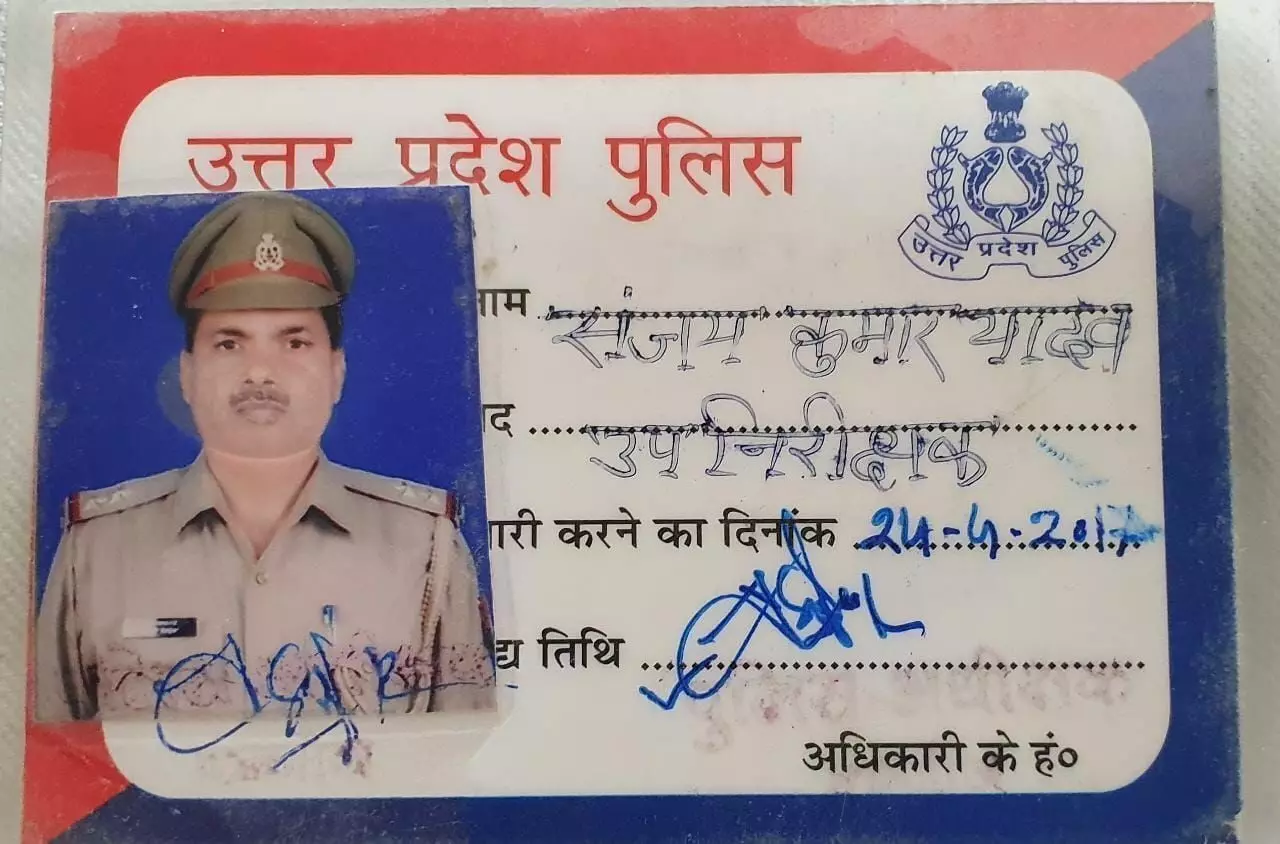 उत्तर प्रदेश पुलिस
उत्तर प्रदेश पुलिस
नाम संजय कुमार यादव
पद उप निरीक्षक
जारी करने का दिनांक 24-4-2017
तिथि
पुलिस अधीक्षक
अधिकारी के हं०